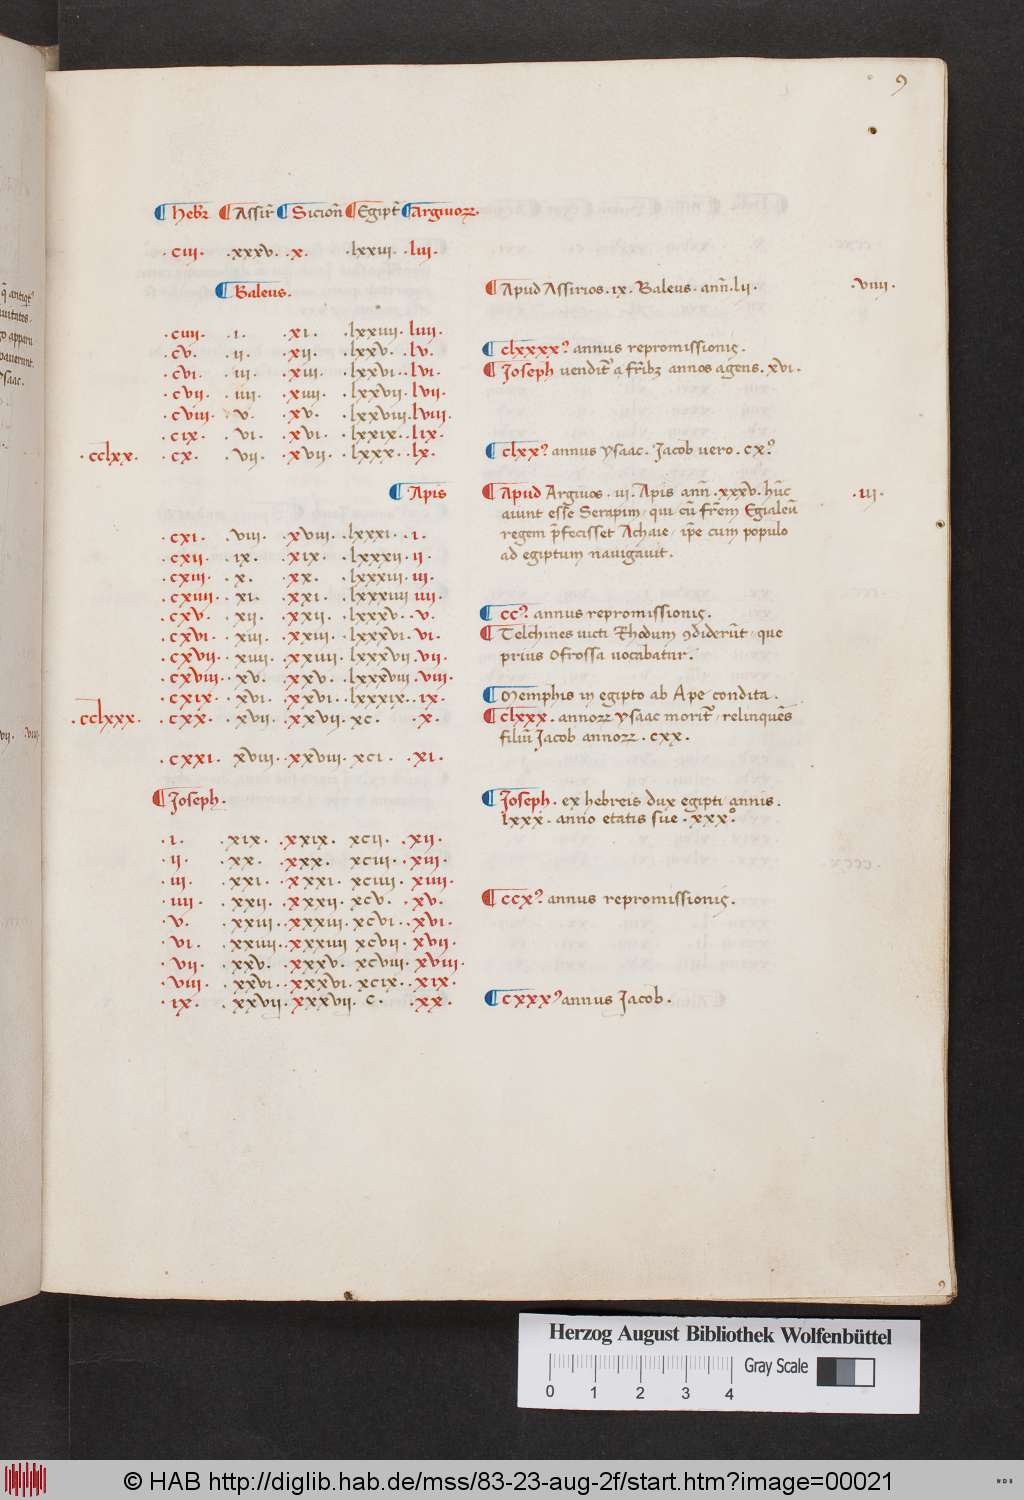 9
¶ Hebr ¶ Assir̄ ¶ Sicion̄ ¶ Egipt̄ ¶ Argiuoꝝ.
· ciii · · xxxv · · x · · lxxiii · · liii ·
¶ Baleus.
¶ Apud Assirios · ix · Baleus · ann̄ · lii · · viiii ·
· ciiii · · i · · xi · · lxxiiii · liiii ·
· cv · · ii · · xii · · lxxv · · lv ·
¶ clxxxx⁹ annus repromissionis.
· cvi · · iii · · xiii · · lxxvi · · lvi ·
¶ Joseph uendit̄ a fr̄ibꝫ annos agens · xvi ·
· cvii · · iiii · · xiiii · · lxxvii · lvii ·
· cviii · · v · · xv · · lxxviii · lviii ·
· cix · · vi · · xvi · · lxxix · · lix ·
· cclxx · · cx · · vii · · xvii · · lxxx · · lx ·
¶ clxx⁹ annus ysaac · Jacob uero · cx⁹
¶ Apis
¶ Apud Argiuos · iii · Apis ann̄ · xxxv · hūc · iii ·
aiunt esse Serapim / qui cū fr̄em Egialeū
regem p̄fecisset Achaie / ip̄e cum populo
ad egiptum nauigauit.
· cxi · · viii · · xviii · · lxxxi · · i ·
· cxii · · ix · · xix · · lxxxii · ii ·
· cxiii · · x · · xx · · lxxxiii · iii ·
· cxiiii · · xi · · xxi · · lxxxiiii iiii ·
· cxv · · xii · · xxii · · lxxxv · · v ·
¶ cc⁹ annus repromissionis.
· cxvi · · xiii · · xxiii · · lxxxvi · vi ·
¶ Telchines uicti Rhodum ꝯdiderūt · que
· cxvii · · xiiii · · xxiiii · · lxxxvii · vii ·
prius Ofiossa uocabatur.
· cxviii · · xv · · xxv · · lxxxviii · viii ·
· cxix · · xvi · · xxvi · · lxxxix · · ix ·
¶ Memphis in egipto ab Ape condita.
· cclxxx · · cxx · · xvii · · xxvii · xc · · x ·
¶ clxxx · annoꝝ ysaac morit̄ / relinquēs
filiū Jacob annoꝝ · cxx ·
· cxxi · · xviii · · xxviii · xci · · xi ·
¶ Joseph.
¶ Joseph · ex hebreis dux egipti annis ·
lxxx · anno etatis sue · xxxº
· i · · xix · · xxix · xcii · · xii ·
· ii · · xx · · xxx · xciii · · xiii ·
· iii · · xxi · · xxxi · xciiii · xiiii ·
· iiii · · xxii · · xxxii · xcv · · xv ·
¶ ccx⁹ annus repromissionis.
· v · · xxiii · · xxxiii · xcvi · · xvi ·
· vi · · xxiiii · · xxxiiii xcvii · xvii ·
· vii · · xxv · · xxxv · xcviii · xviii ·
· viii · · xxvi · · xxxvi · xcix · · xix ·
· ix · · xxvii · xxxvii · c · · xx ·
¶ cxxx⁹ annus Jacob.
Herzog August Bibliothek Wolfenbüttel
Gray Scale
0 1 2 3 4
© HAB http://diglib.hab.de/mss/83-23-aug-2f/start.htm?image=00021